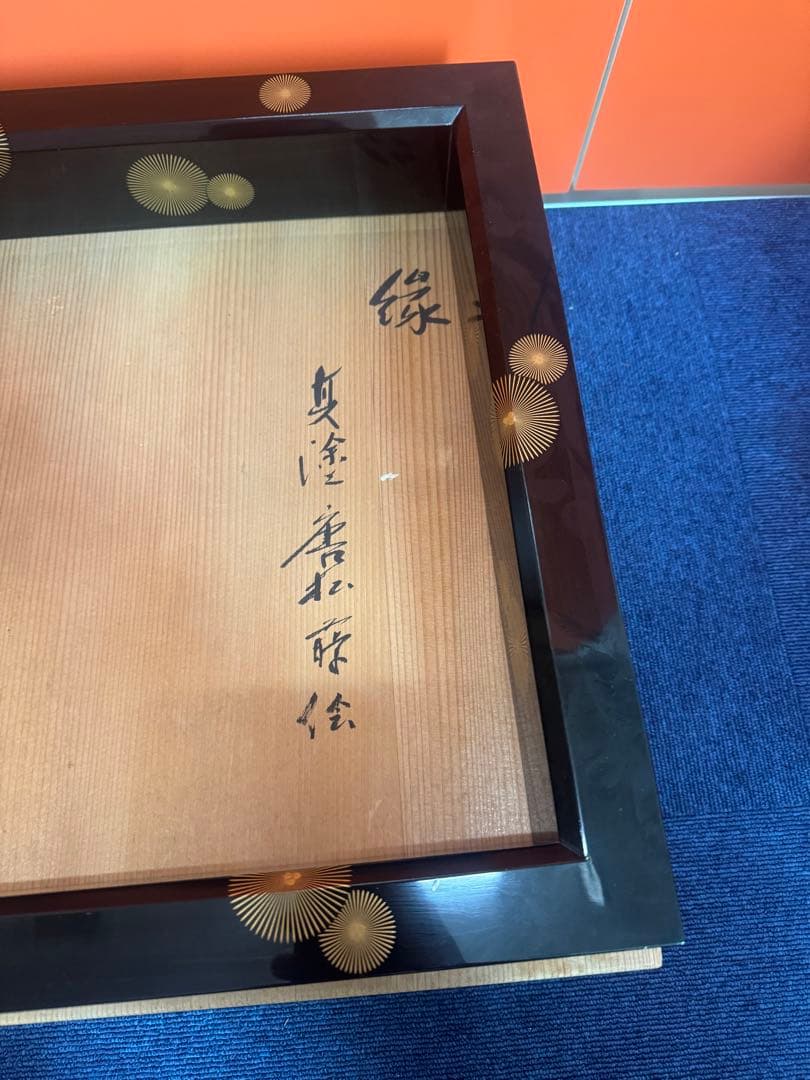 縁
真塗唐松蒔絵